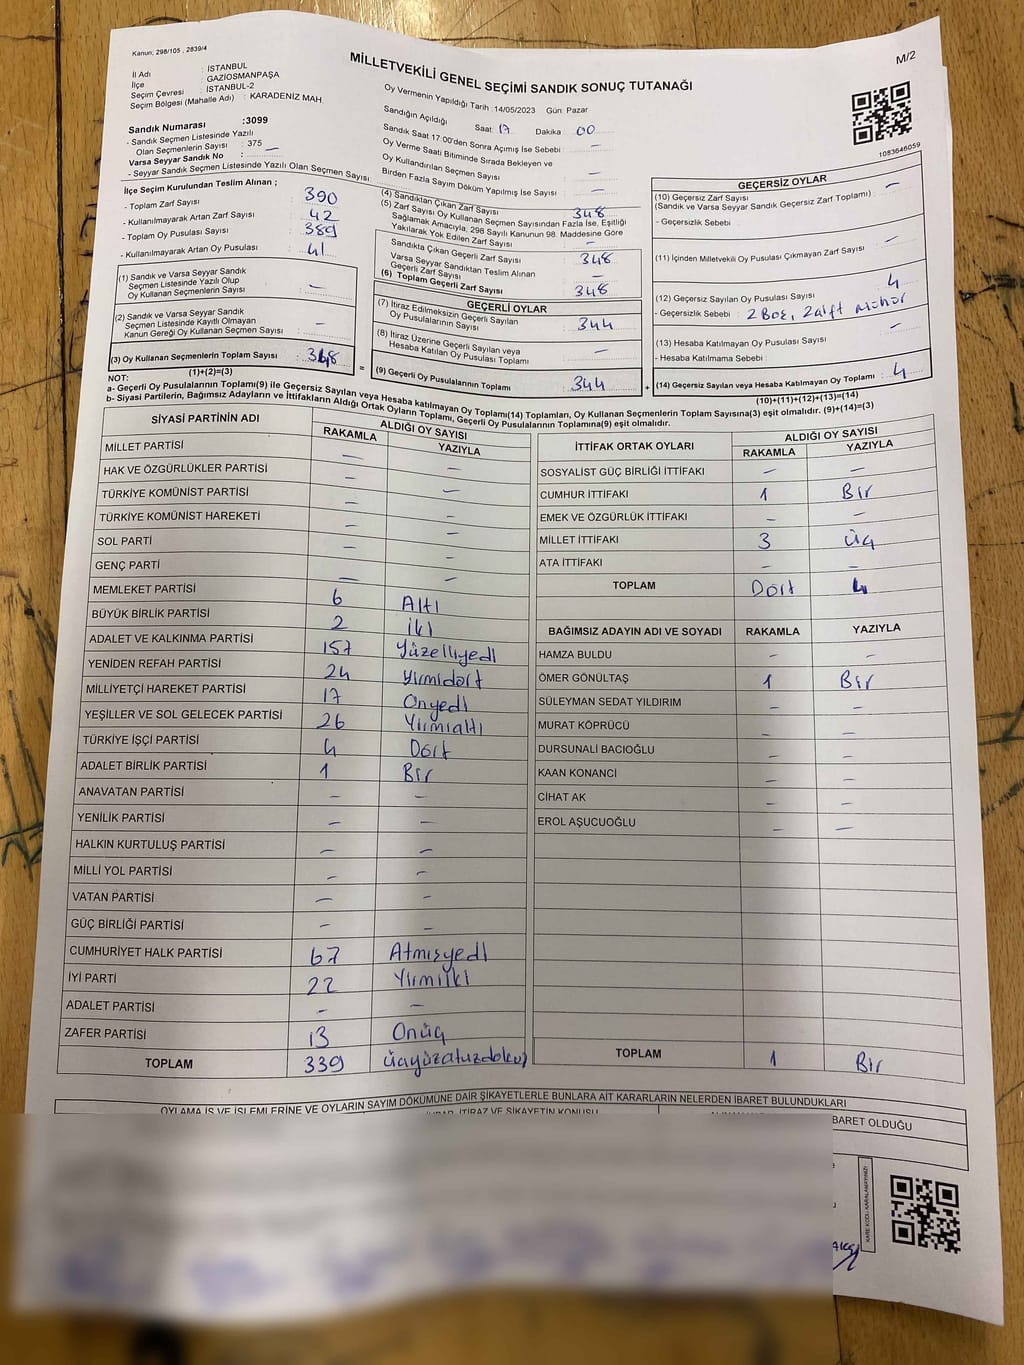 Kanun; 298/105 , 2839/4
MİLLETVEKİLİ GENEL SEÇİMİ SANDIK SONUÇ TUTANAĞI
M/2
İl Adı : İSTANBUL
İlçe : GAZİOSMANPAŞA
Seçim Çevresi : İSTANBUL-2
Seçim Bölgesi (Mahalle Adı) : KARADENİZ MAH.
Sandık Numarası :3099
- Sandık Seçmen Listesinde Yazılı
Olan Seçmenlerin Sayısı : 375
Varsa Seyyar Sandık No : —
- Seyyar Sandık Seçmen Listesinde Yazılı Olan Seçmen Sayısı :
Oy Vermenin Yapıldığı Tarih :14/05/2023 Gün: Pazar
Sandığın Açıldığı Saat: 17 Dakika 00
Sandık Saat 17:00'den Sonra Açımış İse Sebebi : —
Oy Verme Saati Bitiminde Sırada Bekleyen ve
Oy Kullandırılan Seçmen Sayısı : —
Birden Fazla Sayım Döküm Yapılmış İse Sayısı : —
1083646059
İlçe Seçim Kurulundan Teslim Alınan ;
- Toplam Zarf Sayısı : 390
- Kullanılmayarak Artan Zarf Sayısı : 42
- Toplam Oy Pusulası Sayısı : 389
- Kullanılmayarak Artan Oy Pusulası : 41
(1) Sandık ve Varsa Seyyar Sandık
Seçmen Listesinde Yazılı Olup
Oy Kullanan Seçmenlerin Sayısı : —
(2) Sandık ve Varsa Seyyar Sandık
Seçmen Listesinde Kayıtlı Olmayan
Kanun Gereği Oy Kullanan Seçmen Sayısı : —
(3) Oy Kullanan Seçmenlerin Toplam Sayısı : 348
(1)+(2)=(3)
(4) Sandıktan Çıkan Zarf Sayısı : 348
(5) Zarf Sayısı Oy Kullanan Seçmen Sayısından Fazla İse, Eşitliği
Sağlamak Amacıyla, 298 Sayılı Kanunun 98. Maddesine Göre
Yakılarak Yok Edilen Zarf Sayısı : —
Sandıkta Çıkan Geçerli Zarf Sayısı : 348
Varsa Seyyar Sandıktan Teslim Alınan
Geçerli Zarf Sayısı : —
(6) Toplam Geçerli Zarf Sayısı : 348
GEÇERLİ OYLAR
(7) İtiraz Edilmeksizin Geçerli Sayılan
Oy Pusulalarının Sayısı : 344
(8) İtiraz Üzerine Geçerli Sayılan veya
Hesaba Katılan Oy Pusulası Toplamı : —
(9) Geçerli Oy Pusulalarının Toplamı : 344
GEÇERSİZ OYLAR
(10) Geçersiz Zarf Sayısı
(Sandık ve Varsa Seyyar Sandık Geçersiz Zarf Toplamı) : —
- Geçersizlik Sebebi :
(11) İçinden Milletvekili Oy Pusulası Çıkmayan Zarf Sayısı : —
(12) Geçersiz Sayılan Oy Pusulası Sayısı : 4
- Geçersizlik Sebebi : 2 Boş, 2 çift mühür
(13) Hesaba Katılmayan Oy Pusulası Sayısı : —
- Hesaba Katılmama Sebebi :
(14) Geçersiz Sayılan veya Hesaba Katılmayan Oy Toplamı : 4
(10)+(11)+(12)+(13)=(14)
NOT:
a- Geçerli Oy Pusulalarının Toplamı(9) ile Geçersiz Sayılan veya Hesaba Katılmayan Oy Toplamı(14) Toplamları, Oy Kullanan Seçmenlerin Toplam Sayısına(3) eşit olmalıdır. (9)+(14)=(3)
b- Siyasi Partilerin, Bağımsız Adayların ve İttifakların Aldığı Ortak Oyların Toplamı, Geçerli Oy Pusulalarının Toplamına(9) eşit olmalıdır.
SİYASİ PARTİNİN ADI ALDIĞI OY SAYISI
RAKAMLA YAZIYLA
MİLLET PARTİSİ — —
HAK VE ÖZGÜRLÜKLER PARTİSİ — —
TÜRKİYE KOMÜNİST PARTİSİ — —
TÜRKİYE KOMÜNİST HAREKETİ — —
SOL PARTİ — —
GENÇ PARTİ — —
MEMLEKET PARTİSİ 6 Altı
BÜYÜK BİRLİK PARTİSİ 2 İki
ADALET VE KALKINMA PARTİSİ 157 Yüzelliyedi
YENİDEN REFAH PARTİSİ 24 Yirmidört
MİLLİYETÇİ HAREKET PARTİSİ 17 Onyedi
YEŞİLLER VE SOL GELECEK PARTİSİ 26 Yirmialtı
TÜRKİYE İŞÇİ PARTİSİ 4 Dört
ADALET BİRLİK PARTİSİ 1 Bir
ANAVATAN PARTİSİ — —
YENİLİK PARTİSİ — —
HALKIN KURTULUŞ PARTİSİ — —
MİLLİ YOL PARTİSİ — —
VATAN PARTİSİ — —
GÜÇ BİRLİĞİ PARTİSİ — —
CUMHURİYET HALK PARTİSİ 67 Atmışyedi
İYİ PARTİ 22 Yirmiiki
ADALET PARTİSİ — —
ZAFER PARTİSİ 13 Onüç
TOPLAM 339 üçyüzotuzdokuz
İTTİFAK ORTAK OYLARI ALDIĞI OY SAYISI
RAKAMLA YAZIYLA
SOSYALİST GÜÇ BİRLİĞİ İTTİFAKI — —
CUMHUR İTTİFAKI 1 Bir
EMEK VE ÖZGÜRLÜK İTTİFAKI — —
MİLLET İTTİFAKI 3 üç
ATA İTTİFAKI — —
TOPLAM Dört 4
BAĞIMSIZ ADAYIN ADI VE SOYADI RAKAMLA YAZIYLA
HAMZA BULDU — —
ÖMER GÖNÜLTAŞ 1 Bir
SÜLEYMAN SEDAT YILDIRIM — —
MURAT KÖPRÜCÜ — —
DURSUNALİ BACIOĞLU — —
KAAN KONANCİ — —
CİHAT AK — —
EROL AŞUCUOĞLU — —
TOPLAM 1 Bir
OYLAMA İŞ VE İŞLEMLERİNE VE OYLARIN SAYIM DÖKÜMÜNE DAİR ŞİKAYETLERLE BUNLARA AİT KARARLARIN NELERDEN İBARET BULUNDUKLARI
İTİRAZ VE ŞİKAYETİN KONUSU
BARET OLDUĞU